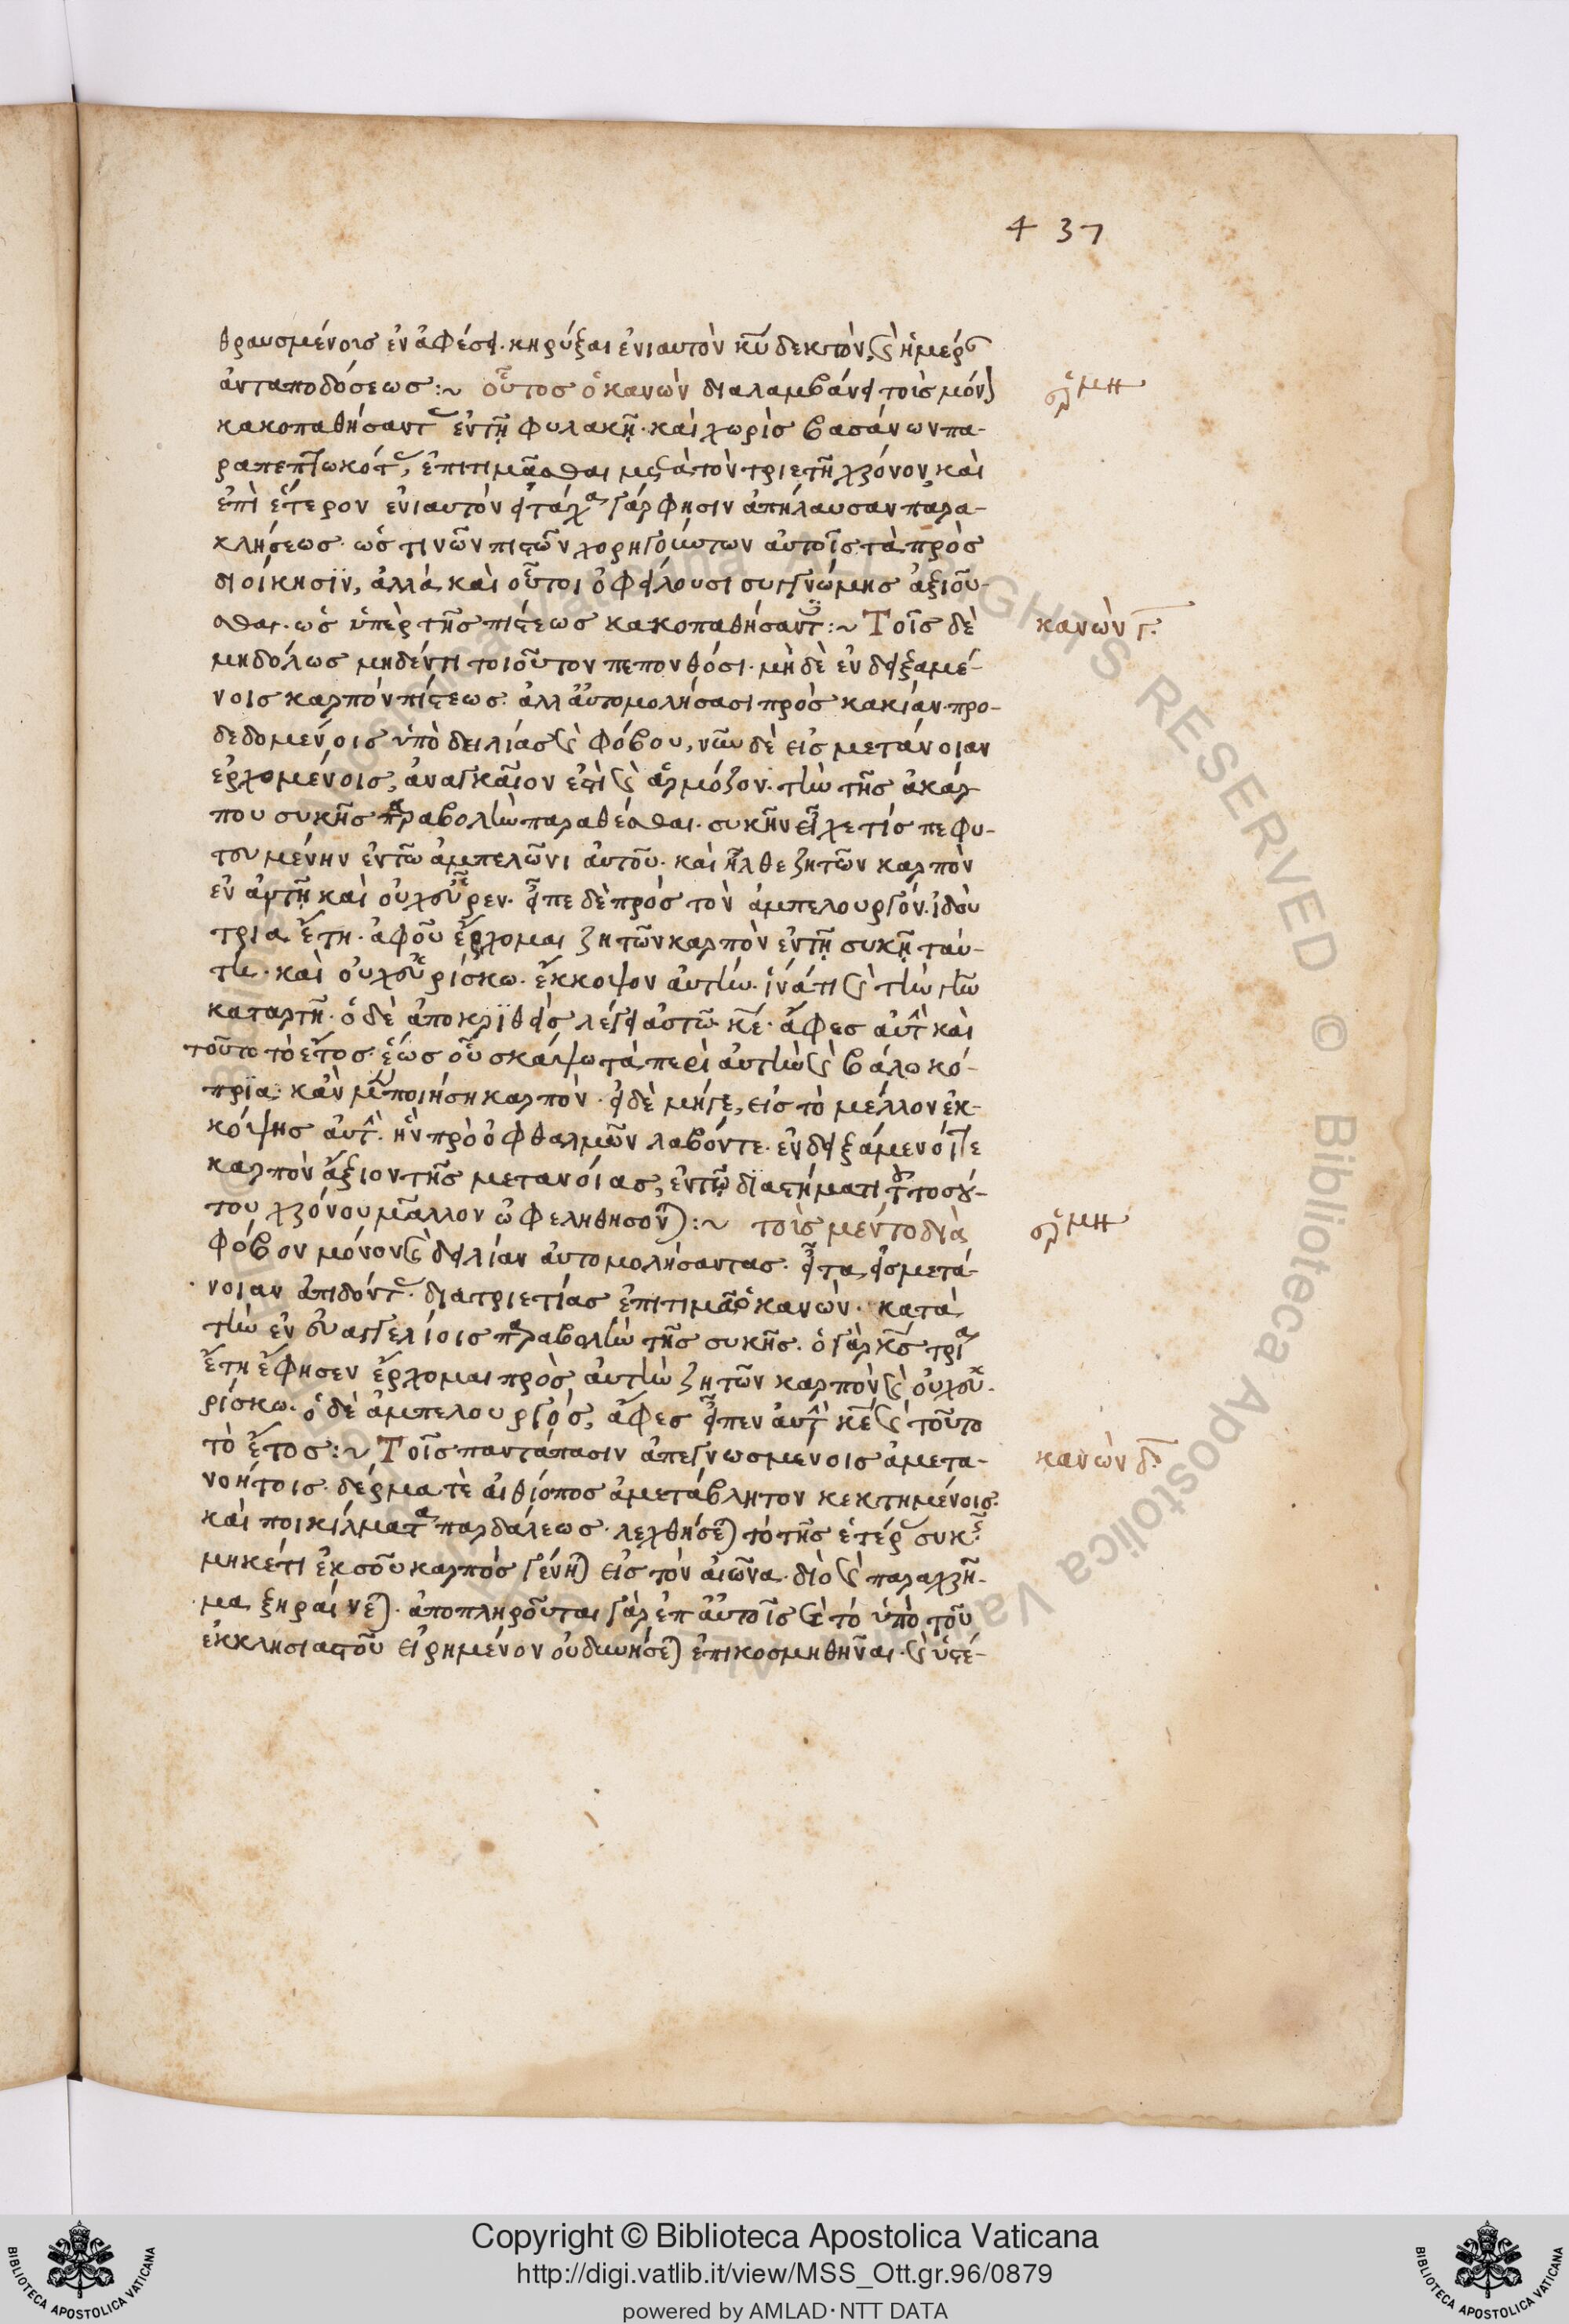 4 37
θραυσμένοις ἐν ἀφέσει· κηρύξαι ἐνιαυτὸν κῡ δεκτὸν, καὶ ἡμέρας
ἀνταποδόσεως :~ οὗτος ὁ κανὼν διαλαμβάνει τοῖς μόνον
κακοπαθήσαντας ἐν τῇ φυλακῇ· καὶ χωρὶς βασάνων πα-
ραπεπτωκότας, ἐπιτιμᾶσθαι μετὰ τὸν τριετῆ χρόνον, καὶ
ἐπὶ ἕτερον ἐνιαυτόν εἰ τάχα γάρ φησιν ἀπήλαυσαν παρα-
κλήσεως· ὥς τινῶν πιστῶν χορηγούντων αὐτοῖς τὰ πρὸς
διοίκησϊν, ἀλλὰ καὶ οὗτοι ὀφείλουσι συγγνώμης ἀξιοῦ-
σθαι· ὡς ὑπὲρ τῆς πίστεως κακοπαθήσαντες :~ Τοῖς δὲ
κανὼν γ̅.
μηδόλως μηδέν τι τοιοῦτον πεπονθόσι· μὴ δὲ ἐνδειξαμέ-
νοις καρπὸν πίστεως· ἀλλ αὐτομολήσασι πρὸς κακίαν· προ-
δεδομένοις ὑπὸ δειλίας καὶ φόβου, νῦν δὲ εἰς μετάνοιαν
ἐρχομένοις, ἀναγκαῖον ἐστὶ καὶ ἁρμόζον· τὴν τῆς ἀκάρ
που συκῆς παραβολὴν παραθέσθαι· συκῆν εἶχε τίς πεφυ-
τουμένην ἐν τῶ ἀμπελῶνι αὐτοῦ· καὶ ἦλθε ζητῶν καρπὸν
ἐν αὐτῇ καὶ οὐχ εὗρεν· εἶπε δὲ πρὸς τὸν ἀμπελουργόν· ἰδοὺ
τρία ἔτη· ἀφοῦ ἔρχομαι ζητῶν καρπὸν ἐν τῇ συκῇ ταύ-
τη· καὶ οὐχ εὑρίσκω· ἔκκοψον αὐτὴν· ἱνάτι καὶ τὴν γῆν
καταργῆ· ὁ δὲ ἀποκρϊθεὶς λέγει αὐτῶ κ̅ε̅· ἄφες αὐτὴν καὶ
τοῦτο τὸ ἔτος· ἕως οὗ σκάψω τὰ περὶ αὐτὴν καὶ βάλω κό-
πρϊα· κἂν μὲν ποιήση καρπόν· εἰ δὲ μήγε, εἰς τὸ μέλλον ἐκ-
κόψης αὐτήν· ἣν πρὸ ὀφθαλμῶν λαβόντε· ἐνδειξάμενοί τε
καρπὸν ἄξιον τῆς μετανοίας, ἐν τῷ διαστήματι τοῦ τοσού-
του χρόνου μᾶλλον ὠφεληθήσονται :~ τοῖς μέν το διὰ
φόβον μόνον καὶ δειλίαν αὐτομολήσαντας· εἶτα, εἰς μετά-
νοιαν ἀπιδόντας· διὰ τριετίας ἐπιτιμᾶ ὁ κανών· κατὰ
τὴν ἐν εὐαγγελίοις παραβολὴν τῆς συκῆς· ὁ γὰρ κ̅ς̅ τρία
ἔτη ἔφησεν ἔρχομαι πρὸς αὐτὴν ζητῶν καρπὸν καὶ οὐχ εὑ-
ρίσκω· ὁ δὲ ἀμπελουργὸς, ἄφες εἶπεν αὐτὴν κ̅ε̅ καὶ τοῦτο
τὸ ἔτος :~ Τοῖς παντάπασιν ἀπεγνωσμένοις ἀμετα-
κανὼν δ̅.
νοήτοις· δέρμα τὲ αἰθίοπος ἀμετάβλητον κεκτημένοις·
καὶ ποικίλματα παρδάλεως· λεχθήσεται τὸ τῆς ἑτέρας συκῆς
μηκέτι ἐκ σοῦ καρπὸς γένηται εἰς τὸν αἰῶνα· διὸ καὶ παραχρῆ-
μα ξηραίνεται· ἀποπληροῦται γὰρ ἐπ αὐτοῖς καὶ τὸ ὑπὸ τοῦ
ἐκκλησιαστοῦ εἰρημένον οὐ δυνήσεται ἐπικοσμηθῆναι· καὶ ὑστέ-
Copyright © Biblioteca Apostolica Vaticana
http://digi.vatlib.it/view/MSS_Ott.gr.96/0879
powered by AMLAD·NTT DATA